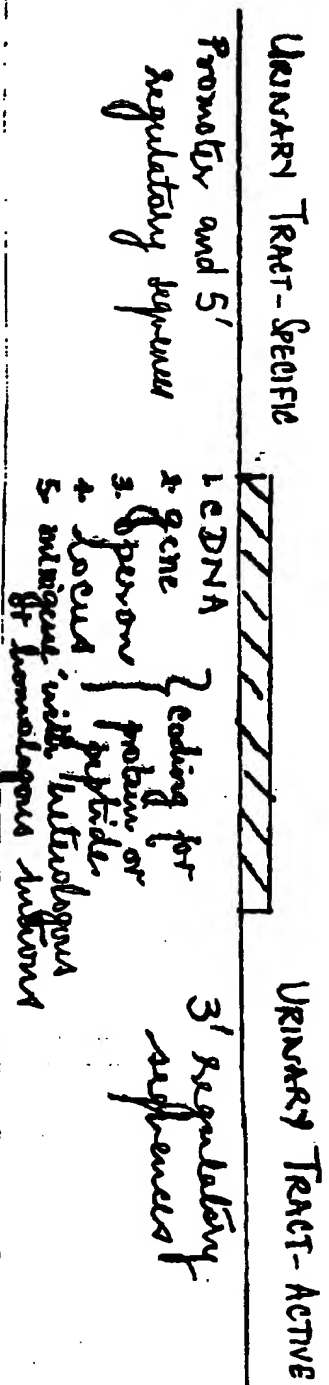 URINARY TRACT-SPECIFIC
Promoter and 5'
regulatory sequences
1. cDNA
2. gene
3. operon
4. locus
5. minigene with heterologous
or homologous introns
} coding for
protein or
peptide
URINARY TRACT-ACTIVE
3' regulatory
sequences